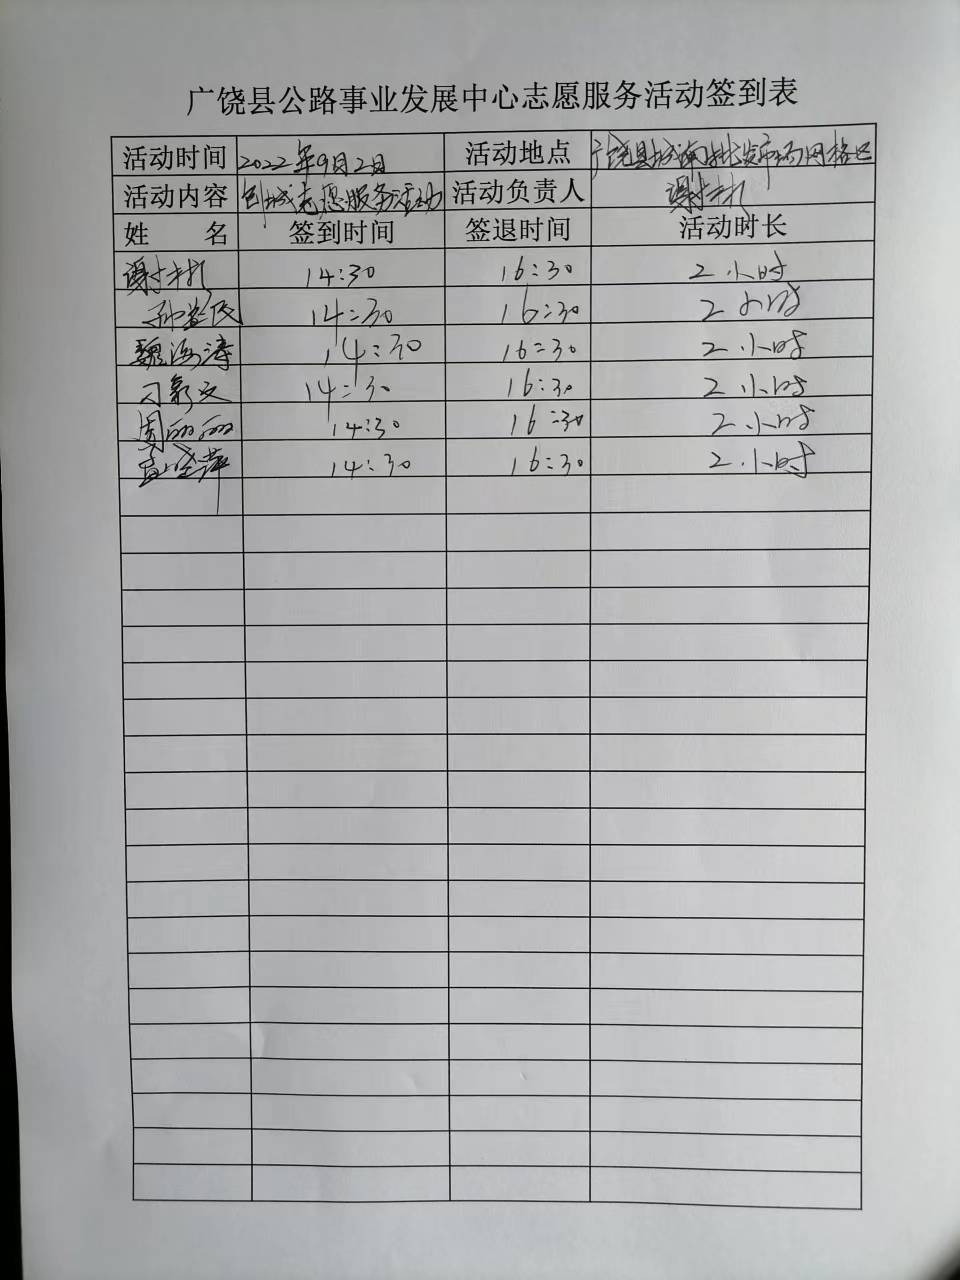 广饶县公路事业发展中心志愿服务活动签到表
活动时间 2022年9月2日 活动地点 广饶县城南批发市场网格区
活动内容 创城志愿服务活动 活动负责人 谢
姓 名 签到时间 签退时间 活动时长
谢 14:30 16:30 2小时
孙 14:30 16:30 2小时
魏海涛 14:30 16:30 2小时
刁 文 14:30 16:30 2小时
周丽丽 14:30 16:30 2小时
14:30 16:30 2小时